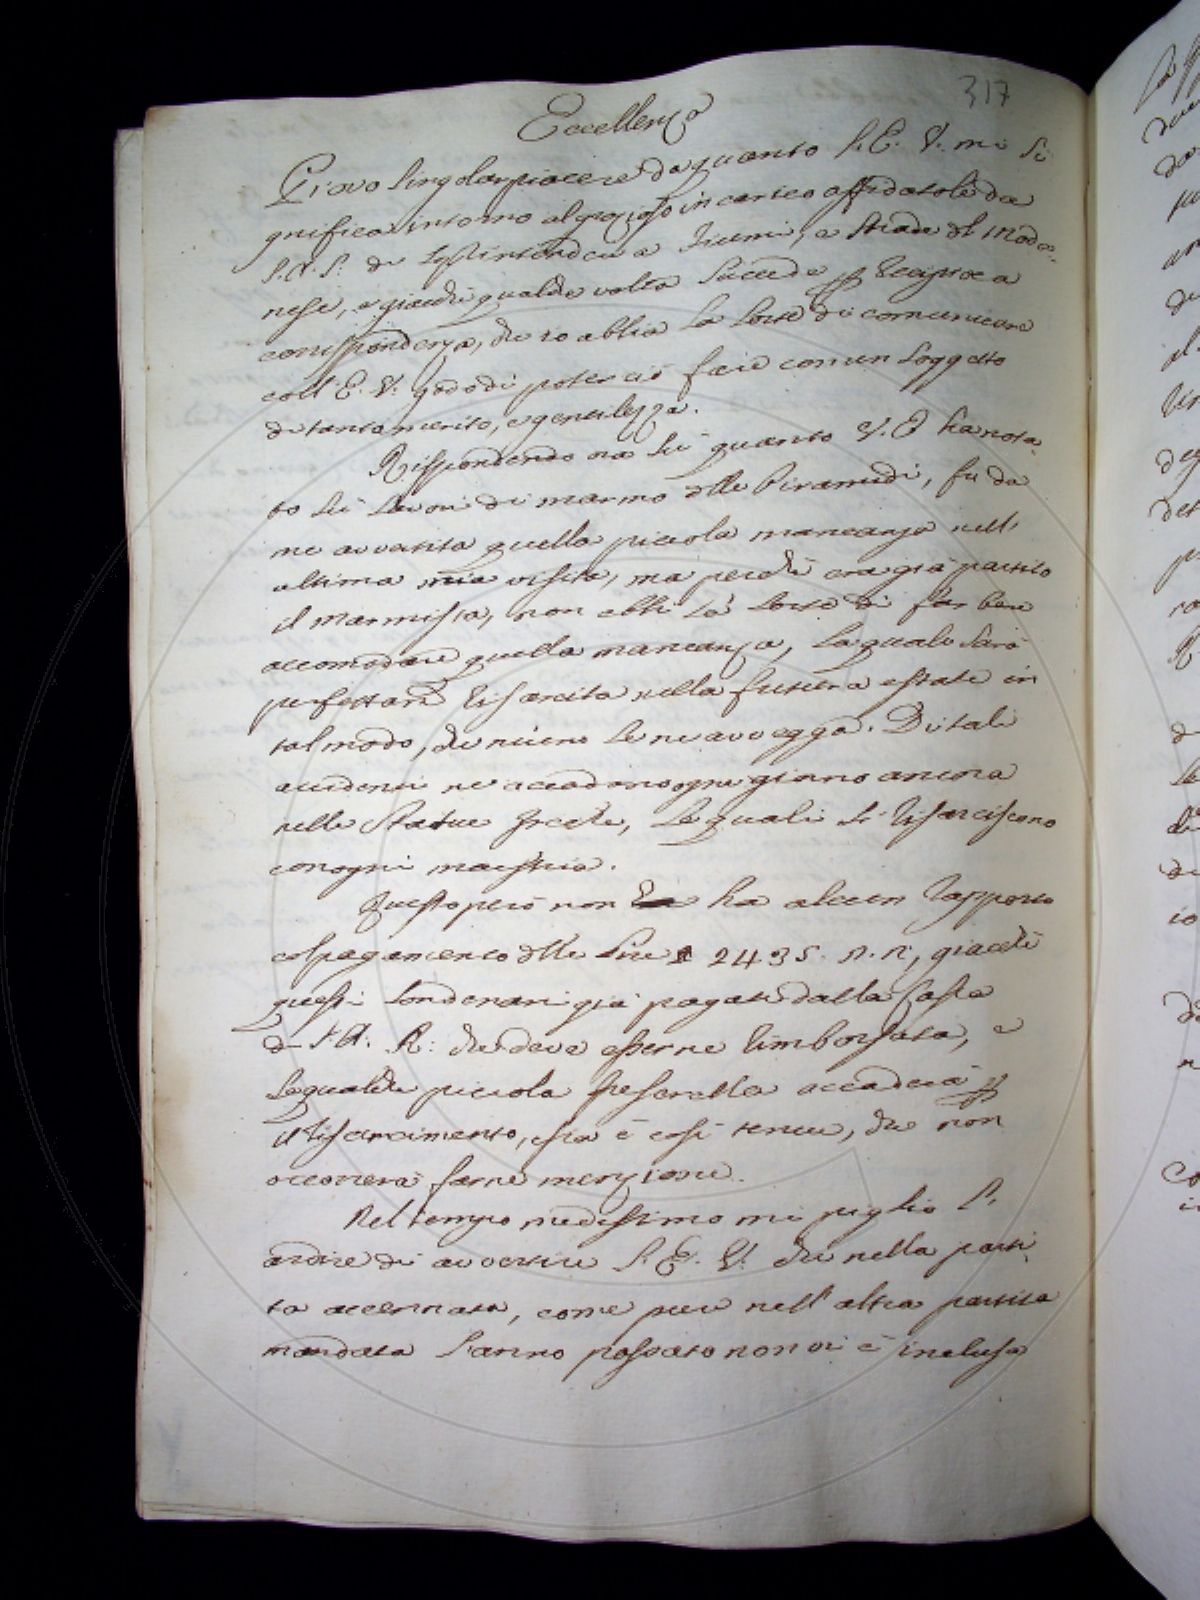 317
Eccellenza
Provo singolar piacere da quanto l'E. V. mi si
gnifica intorno al grazioso incarico affidatole da
S. A. S. di Soprintendere a Fiumi, e Strade del Moda-
nese, e giacchè qualche volta succede per reciproca
corrispondenza, che io abbia la sorte di comunicare
coll'E. V. godo di poter ciò fare con un soggetto
di tanto merito, e gentilezza.
Rispondendo ora su quanto V. E. ha nota-
to sù lavori di marmo delle Piramidi, fu da
me avvertita quella piccola mancanza nell'
ultima mia visita, ma perchè era già partito
il marmista, non ebbi la sorte di far bene
accomodare quella mancanza, la quale sarà
perfettam.e risarcita nella futura estate in
tal modo, che niuno se ne avvegga. Di tali
accidenti ne accadono ogni giorno ancora
nelle Statue greche, le quali si risarciscono
con ogni maestria.
Questo però non ha alcun rapporto
col pagamento delle Lire 2435. n. n, giacchè
questi son denari già pagati dalla Cassa
di S. A. R: che deve esserne rimborsata, e
se qualche piccola spesarella accaderà per
il risarcimento, essa è così tenue, che non
occorrerà farne menzione.
Nel tempo medessimo mi piglio l'
ardire di avvertire l'E. V. che nella parti-
ta accennata, come pure nell'altra partita
mandata l'anno passato non vi è inclusa